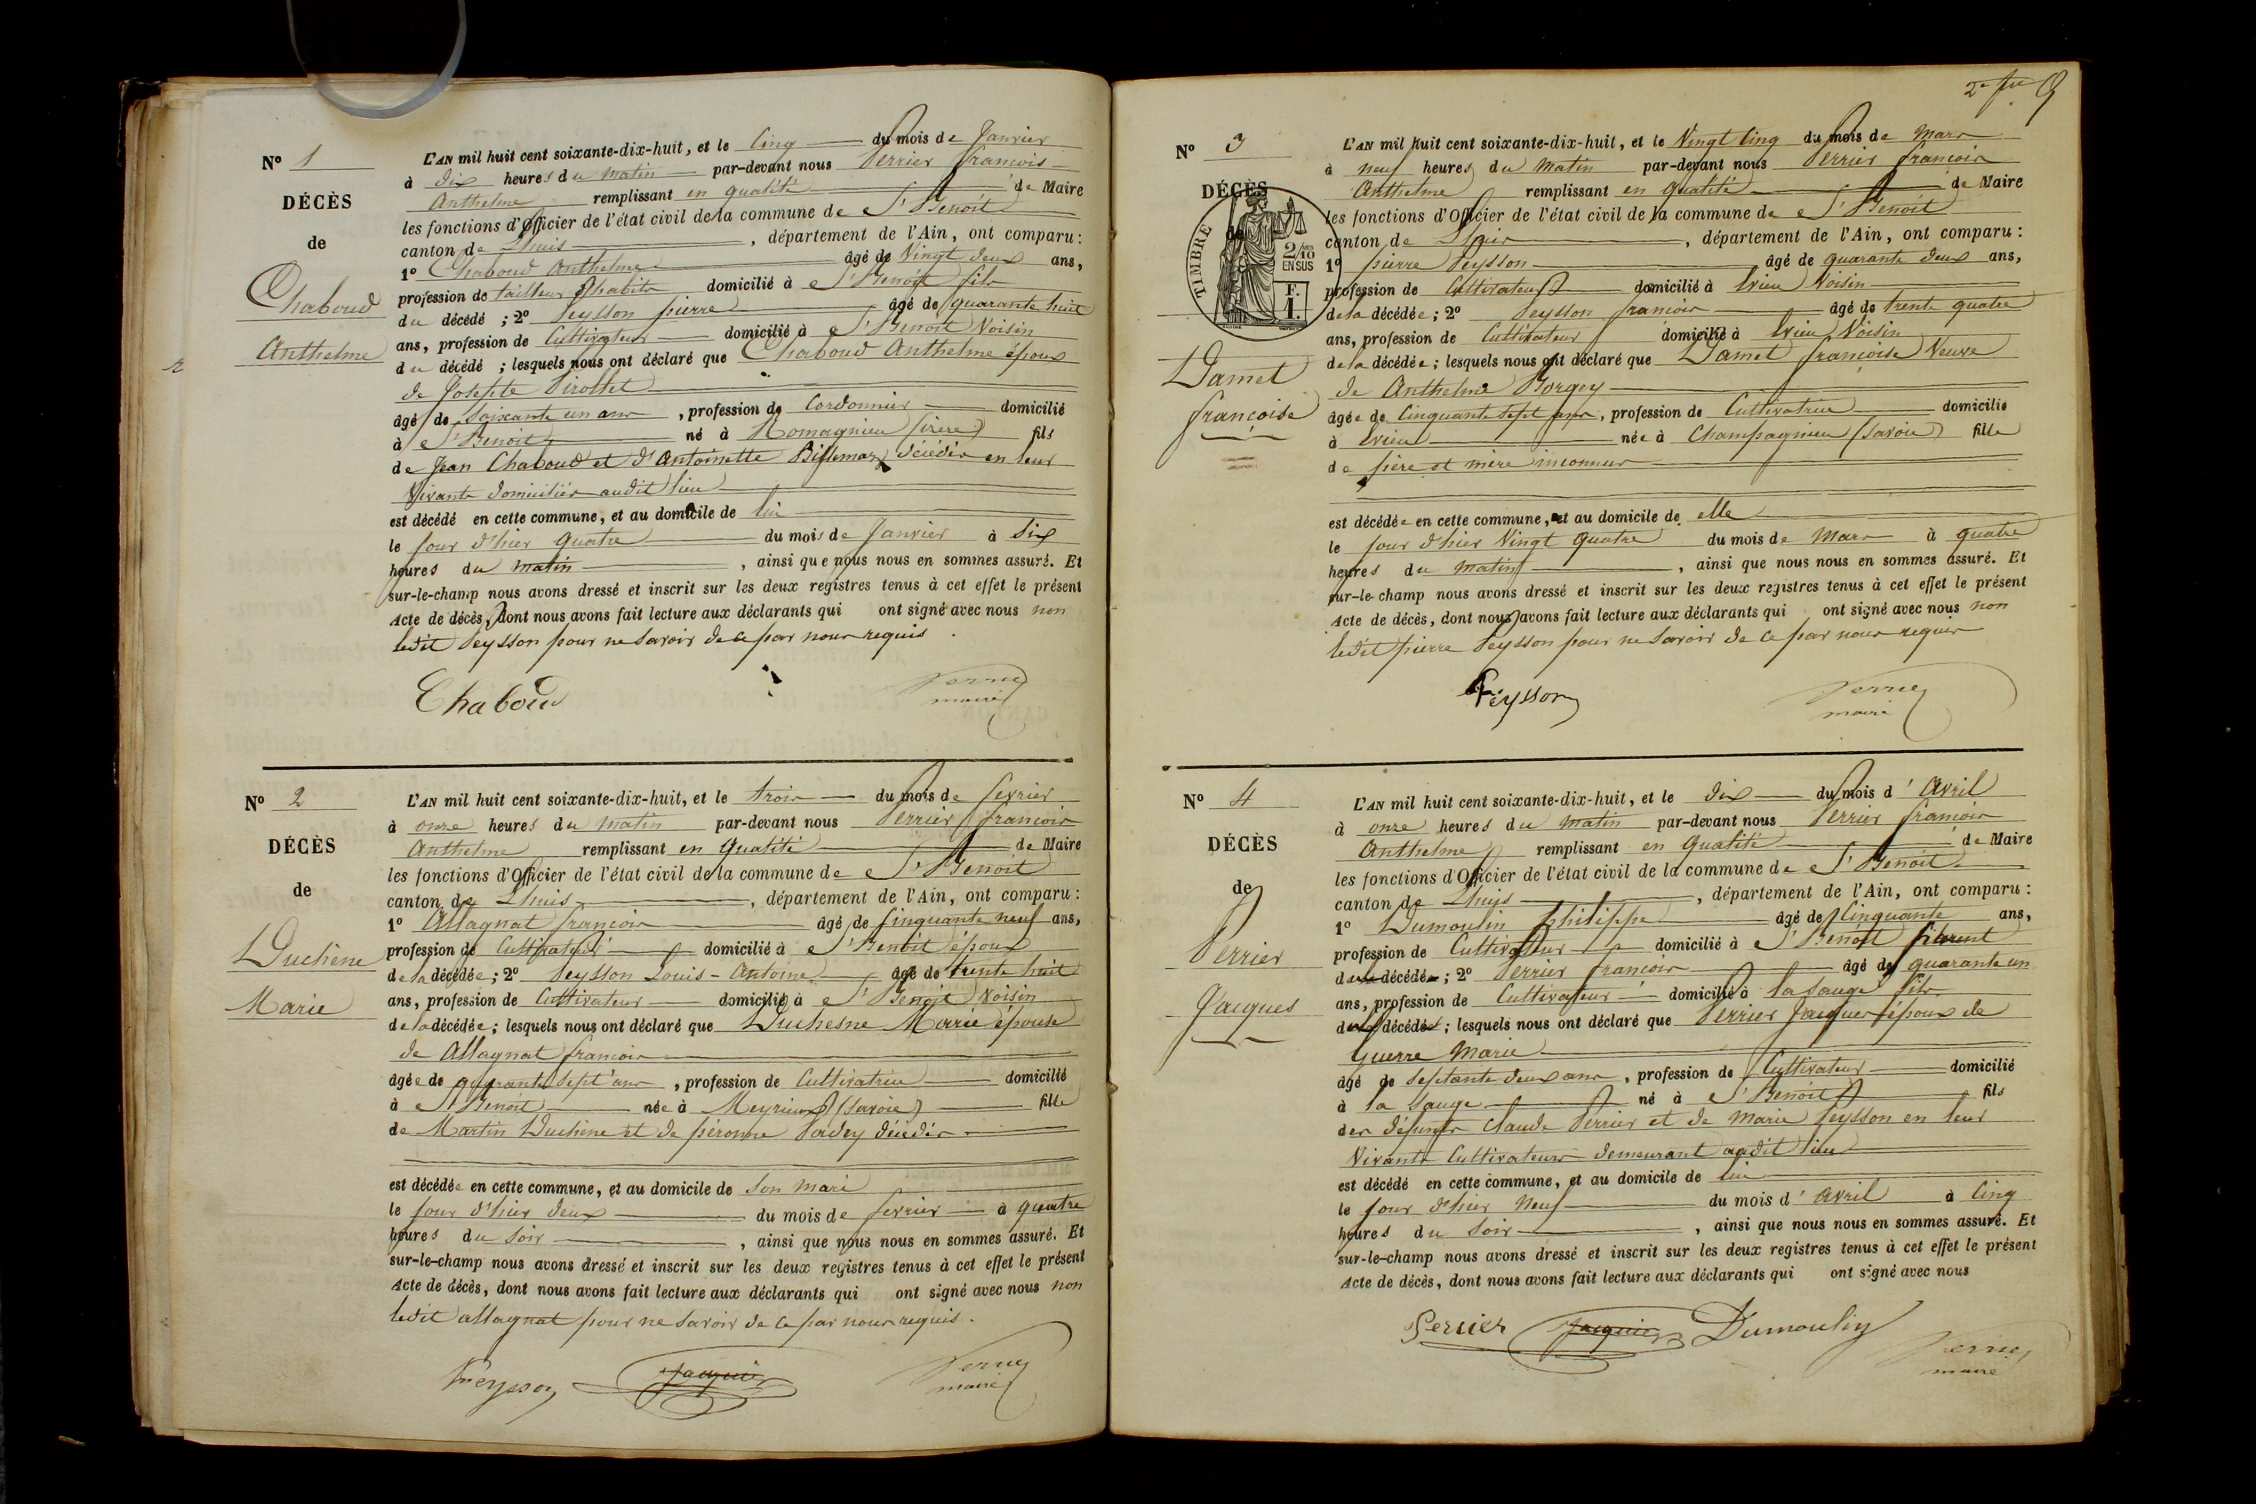 N° 1
DÉCÈS
de
Chaboud
Anthelme
L'AN mil huit cent soixante-dix-huit, et le Cinq du mois de Janvier
à dix heures du matin par-devant nous Perrier françois
Anthelme remplissant en qualité de Maire
les fonctions d'Officier de l'état civil de la commune de St Benoit
canton de Lhuis, département de l'Ain, ont comparu:
1° Chaboud Anthelme âgé de Vingt deux ans,
profession de tailleur d'habits domicilié à St Benoit fils
du décédé ; 2° Peysson pierre âgé de quarante huit
ans, profession de Cultivateur domicilié à St Benoit Voisin
du décédé ; lesquels nous ont déclaré que Chaboud Anthelme époux
de Josephte Pirollet
âgé de Soixante un ans, profession de Cordonnier domicilié
à St Benoit né à Romagnieu (isère) fils
de Jean Chaboud et d'Antoinette décédés en leur
Vivants domiciliés audit lieu
est décédé en cette commune, et au domicile de lui
le jour d'hier quatre du mois de Janvier à Six
heures du matin, ainsi que nous nous en sommes assuré. Et
sur-le-champ nous avons dressé et inscrit sur les deux registres tenus à cet effet le présent
Acte de décès, dont nous avons fait lecture aux déclarants qui ont signé avec nous non
ledit Peysson pour ne savoir de ce par nous requis.
Chaboud Perrier
maire
N° 2
DÉCÈS
de
Duchène
Marie
L'AN mil huit cent soixante-dix-huit, et le trois du mois de fevrier
à onze heures du matin par-devant nous Perrier françois
Anthelme remplissant en qualité de Maire
les fonctions d'Officier de l'état civil de la commune de St Benoit
canton de Lhuis, département de l'Ain, ont comparu:
1° Allagnat françois âgé de Cinquante neuf ans,
profession de Cultivateur domicilié à St Benoit époux
de la décédée; 2° Peysson Louis-Antoine âgé de trente huit
ans, profession de Cultivateur domicilié à St Benoit Voisin
de la décédée; lesquels nous ont déclaré que Duchesne Marie épouse
de Allagnat françois
âgée de quarante sept ans, profession de Cultivatrice domicilié
à St Benoit née à Meyrieux (Savoie) fille
de Martin Duchène et de péronne décédés
est décédée en cette commune, et au domicile de son mari
le jour d'hier deux du mois de fevrier à quatre
heures du soir, ainsi que nous nous en sommes assuré. Et
sur-le-champ nous avons dressé et inscrit sur les deux registres tenus à cet effet le présent
Acte de décès, dont nous avons fait lecture aux déclarants qui ont signé avec nous non
ledit allagnat pour ne savoir de ce par nous requis.
Peysson Jacquier Perrier
maire
N° 3
DÉCÈS
de
TIMBRE
2/10
EN SUS
F.
1.
Damet
françoise
L'AN mil huit cent soixante-dix-huit, et le Vingt Cinq du mois de Mars
à neuf heures du Matin par-devant nous Perrier françois
Anthelme remplissant en qualité de Maire
les fonctions d'Officier de l'état civil de la commune de St Benoit
canton de Lhuis, département de l'Ain, ont comparu:
1° pierre Peysson âgé de quarante deux ans,
profession de Cultivateur domicilié à Evieu Voisin
de la décédée; 2° Peysson françois âgé de trente quatre
ans, profession de Cultivateur domicilié à Evieu Voisin
de la décédée; lesquels nous ont déclaré que Damet françoise Veuve
de Anthelme Borgey
âgée de Cinquante sept ans, profession de Cultivatrice domicilié
à Evieu née à Champagnieu (Savoie) fille
de père et mère inconnus
est décédée en cette commune, et au domicile de elle
le jour d'hier Vingt quatre du mois de Mars à quatre
heures du Matin, ainsi que nous nous en sommes assuré. Et
sur-le-champ nous avons dressé et inscrit sur les deux registres tenus à cet effet le présent
Acte de décès, dont nous avons fait lecture aux déclarants qui ont signé avec nous non
ledit pierre Peysson pour ne savoir de ce par nous requis
Peysson Perrier
maire
N° 4
DÉCÈS
de
Perrier
Jacques
L'AN mil huit cent soixante-dix-huit, et le dix du mois d'Avril
à onze heures du matin par-devant nous Perrier françois
Anthelme remplissant en qualité de Maire
les fonctions d'Officier de l'état civil de la commune de St Benoit
canton de Lhuis, département de l'Ain, ont comparu:
1° Dumoulin Philippe âgé de Cinquante ans,
profession de Cultivateur domicilié à St Benoit
du décédé; 2° Perrier françois âgé de quarante un
ans, profession de Cultivateur domicilié à la Sauge fils
du décédé; lesquels nous ont déclaré que Perrier Jacques époux de
Guerre Marie
âgé de Septante deux ans, profession de Cultivateur domicilié
à la Sauge né à St Benoit fils
des défunts Claude Perrier et de Marie Peysson en leur
Vivants Cultivateurs demeurant audit lieu
est décédé en cette commune, et au domicile de lui
le jour d'hier Neuf du mois d'Avril à Cinq
heures du soir, ainsi que nous nous en sommes assuré. Et
sur-le-champ nous avons dressé et inscrit sur les deux registres tenus à cet effet le présent
Acte de décès, dont nous avons fait lecture aux déclarants qui ont signé avec nous
Perrier Jacquier Dumoulin Perrier
maire